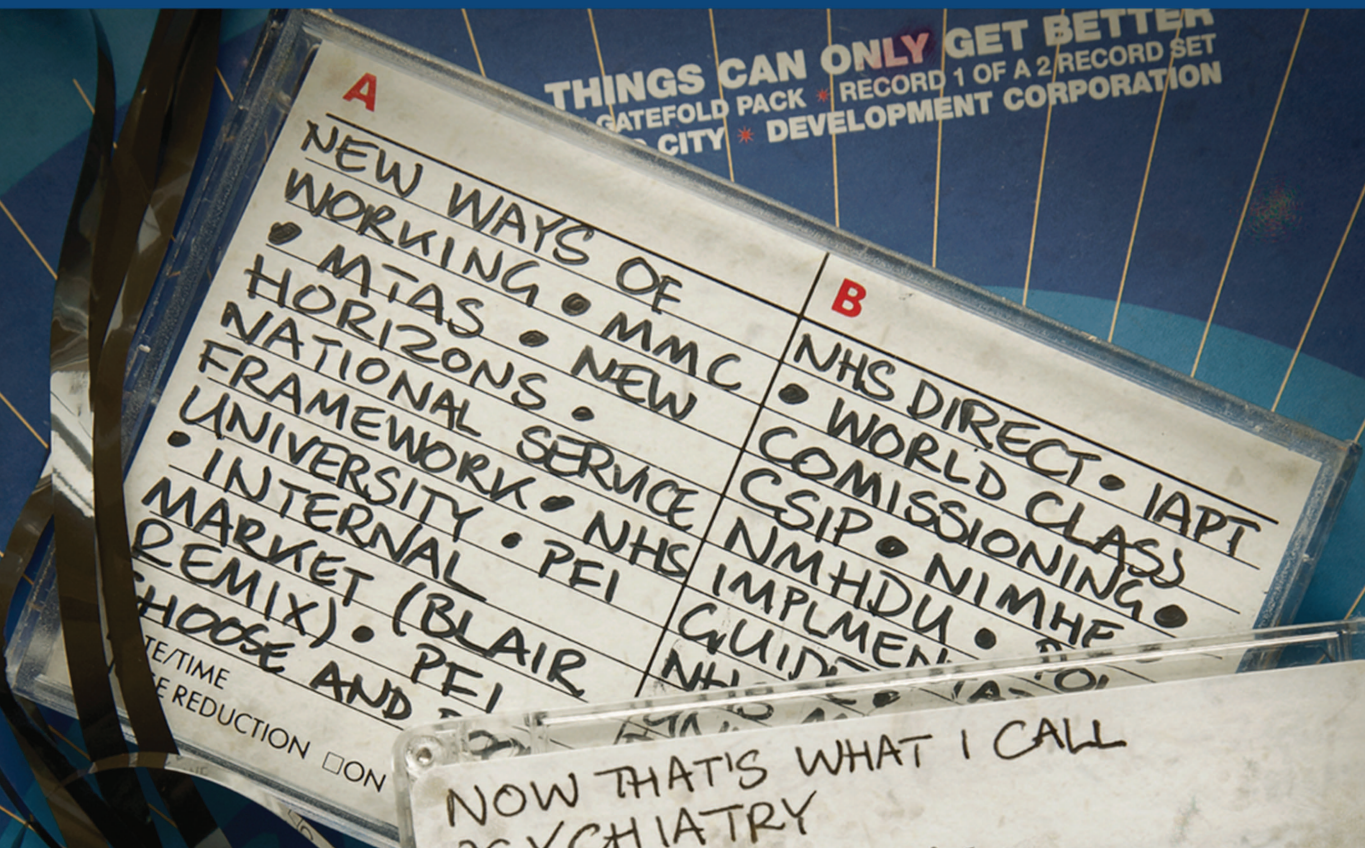 THINGS CAN ONLY GET BETTER
GATEFOLD PACK * RECORD 1 OF A 2 RECORD SET
CITY * DEVELOPMENT CORPORATION
A
NEW WAYS OF
WORKING • MMC
• MTAS • NEW
HORIZONS •
NATIONAL SERVICE
FRAMEWORK • NHS
UNIVERSITY • PFI
• INTERNAL
MARKET (BLAIR
REMIX) • PFI
AND
REDUCTION □ON
B
NHS DIRECT • IAPT
• WORLD CLASS
COMISSIONING •
CSIP • NIMHE
NMHDU •
NOW THAT'S WHAT I CALL
PSYCHIATRY